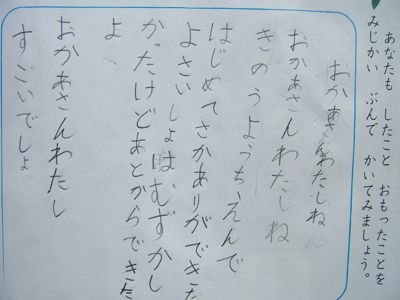 あなたも したこと おもったことを
みじかい ぶんで かいてみましょう。
おかあさんわたしね
おかあさんわたしね
きのうようちえんで
はじめてさかありができた
よさいしょはむずかし
かったけどあとからできた
よ
おかあさんわたし
すごいでしょ